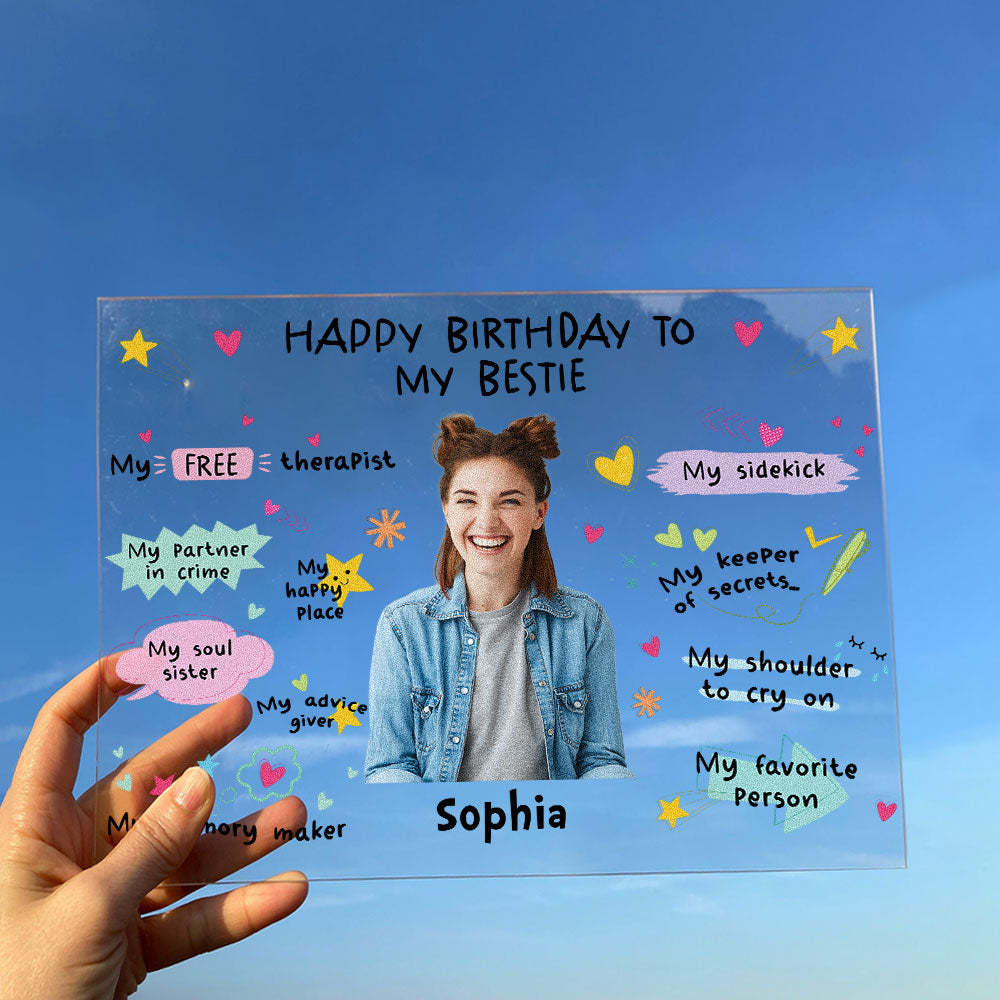 HAPPY BIRTHDAY TO
MY BESTIE
My FREE therapist
My sidekick
My Partner
in crime
My
happy
Place
My keeper
of secrets_
My soul
sister
My advice
giver
My shoulder
to cry on
My favorite
Person
maker
Sophia